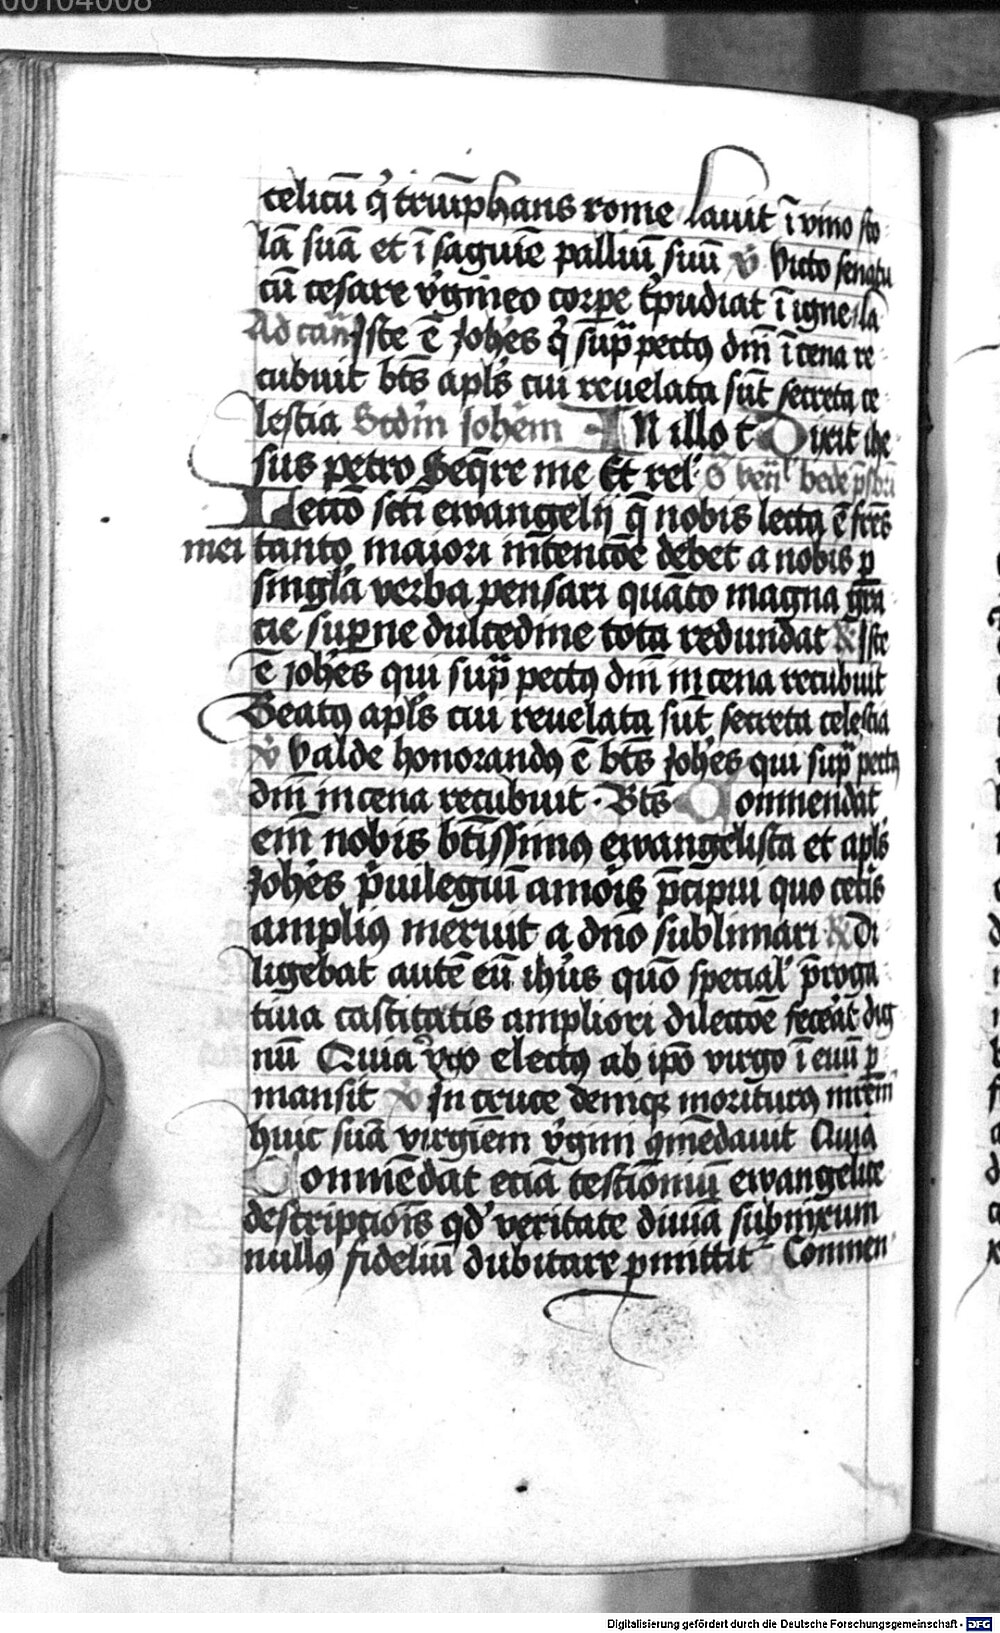 00104008
celicū q̇ triūphans rome lauit ī vino sto
lā suā et ī sāguīe palliū suū ℣ Victo senatu
cū cesare v̓gineo corpe t̓pudiat ī igne la
Ad cāñ Iste ē Joh̓es q̇ sup̄ pectꝰ dm̄ī ī cena re
cubuit bt̄s apl̄s cui reuelata sūt secreta ce
lestia Scd̓m Joh̓em IN illo t̄ Dixit ihe
sus petro Seq̄re me Et rel̓ O ven̄l̓ bede p̄sbri
Lectō sct̄i ewangelij q̄ nobis lecta ē fr̄es
mei tanto maiori īntencōe debet a nobis ꝑ
singl̓a verba pensari quāto magna grā
cie suꝑne dulcedine tota redundat ℟ Iste
ē Joh̓es qui sup̄ pectꝰ dm̄ī in cena recubuit
Beatꝰ apl̄s cui reuelata sūt secreta celestia
℣ Valde honorandꝰ ē bt̄s Joh̓es qui sup̄ pectꝰ
dm̄ī in cena recubuit · Bt̄s Commendat
em̄ nobis bt̄issimꝰ ewangelista et apl̄s
Joh̓es p̓uilegiū amōis p̄cipui quo cet̓is
ampliꝰ meruit a dn̄o sublimari ℟ Di
ligebat autē eū ih̓us quō special̓ p̄roga
tiua castitatis ampliori dilectōe fec̓at dig
nū Quia v̓go electꝰ ab ip̄o virgo ī euū ꝑ
mansit ℣ In cruce deniqꝫ moriturꝰ mr̄em
huic suā virgīem v̓gini ꝯmēdauit Quia
Commēdat eciā testīoniū ewangelice
descripciōis qd̓ veritate diuiā subnixum
nullꝰ fideliū dubitare ꝑmittit Commen
Digitalisierung gefördert durch die Deutsche Forschungsgemeinschaft - DFG